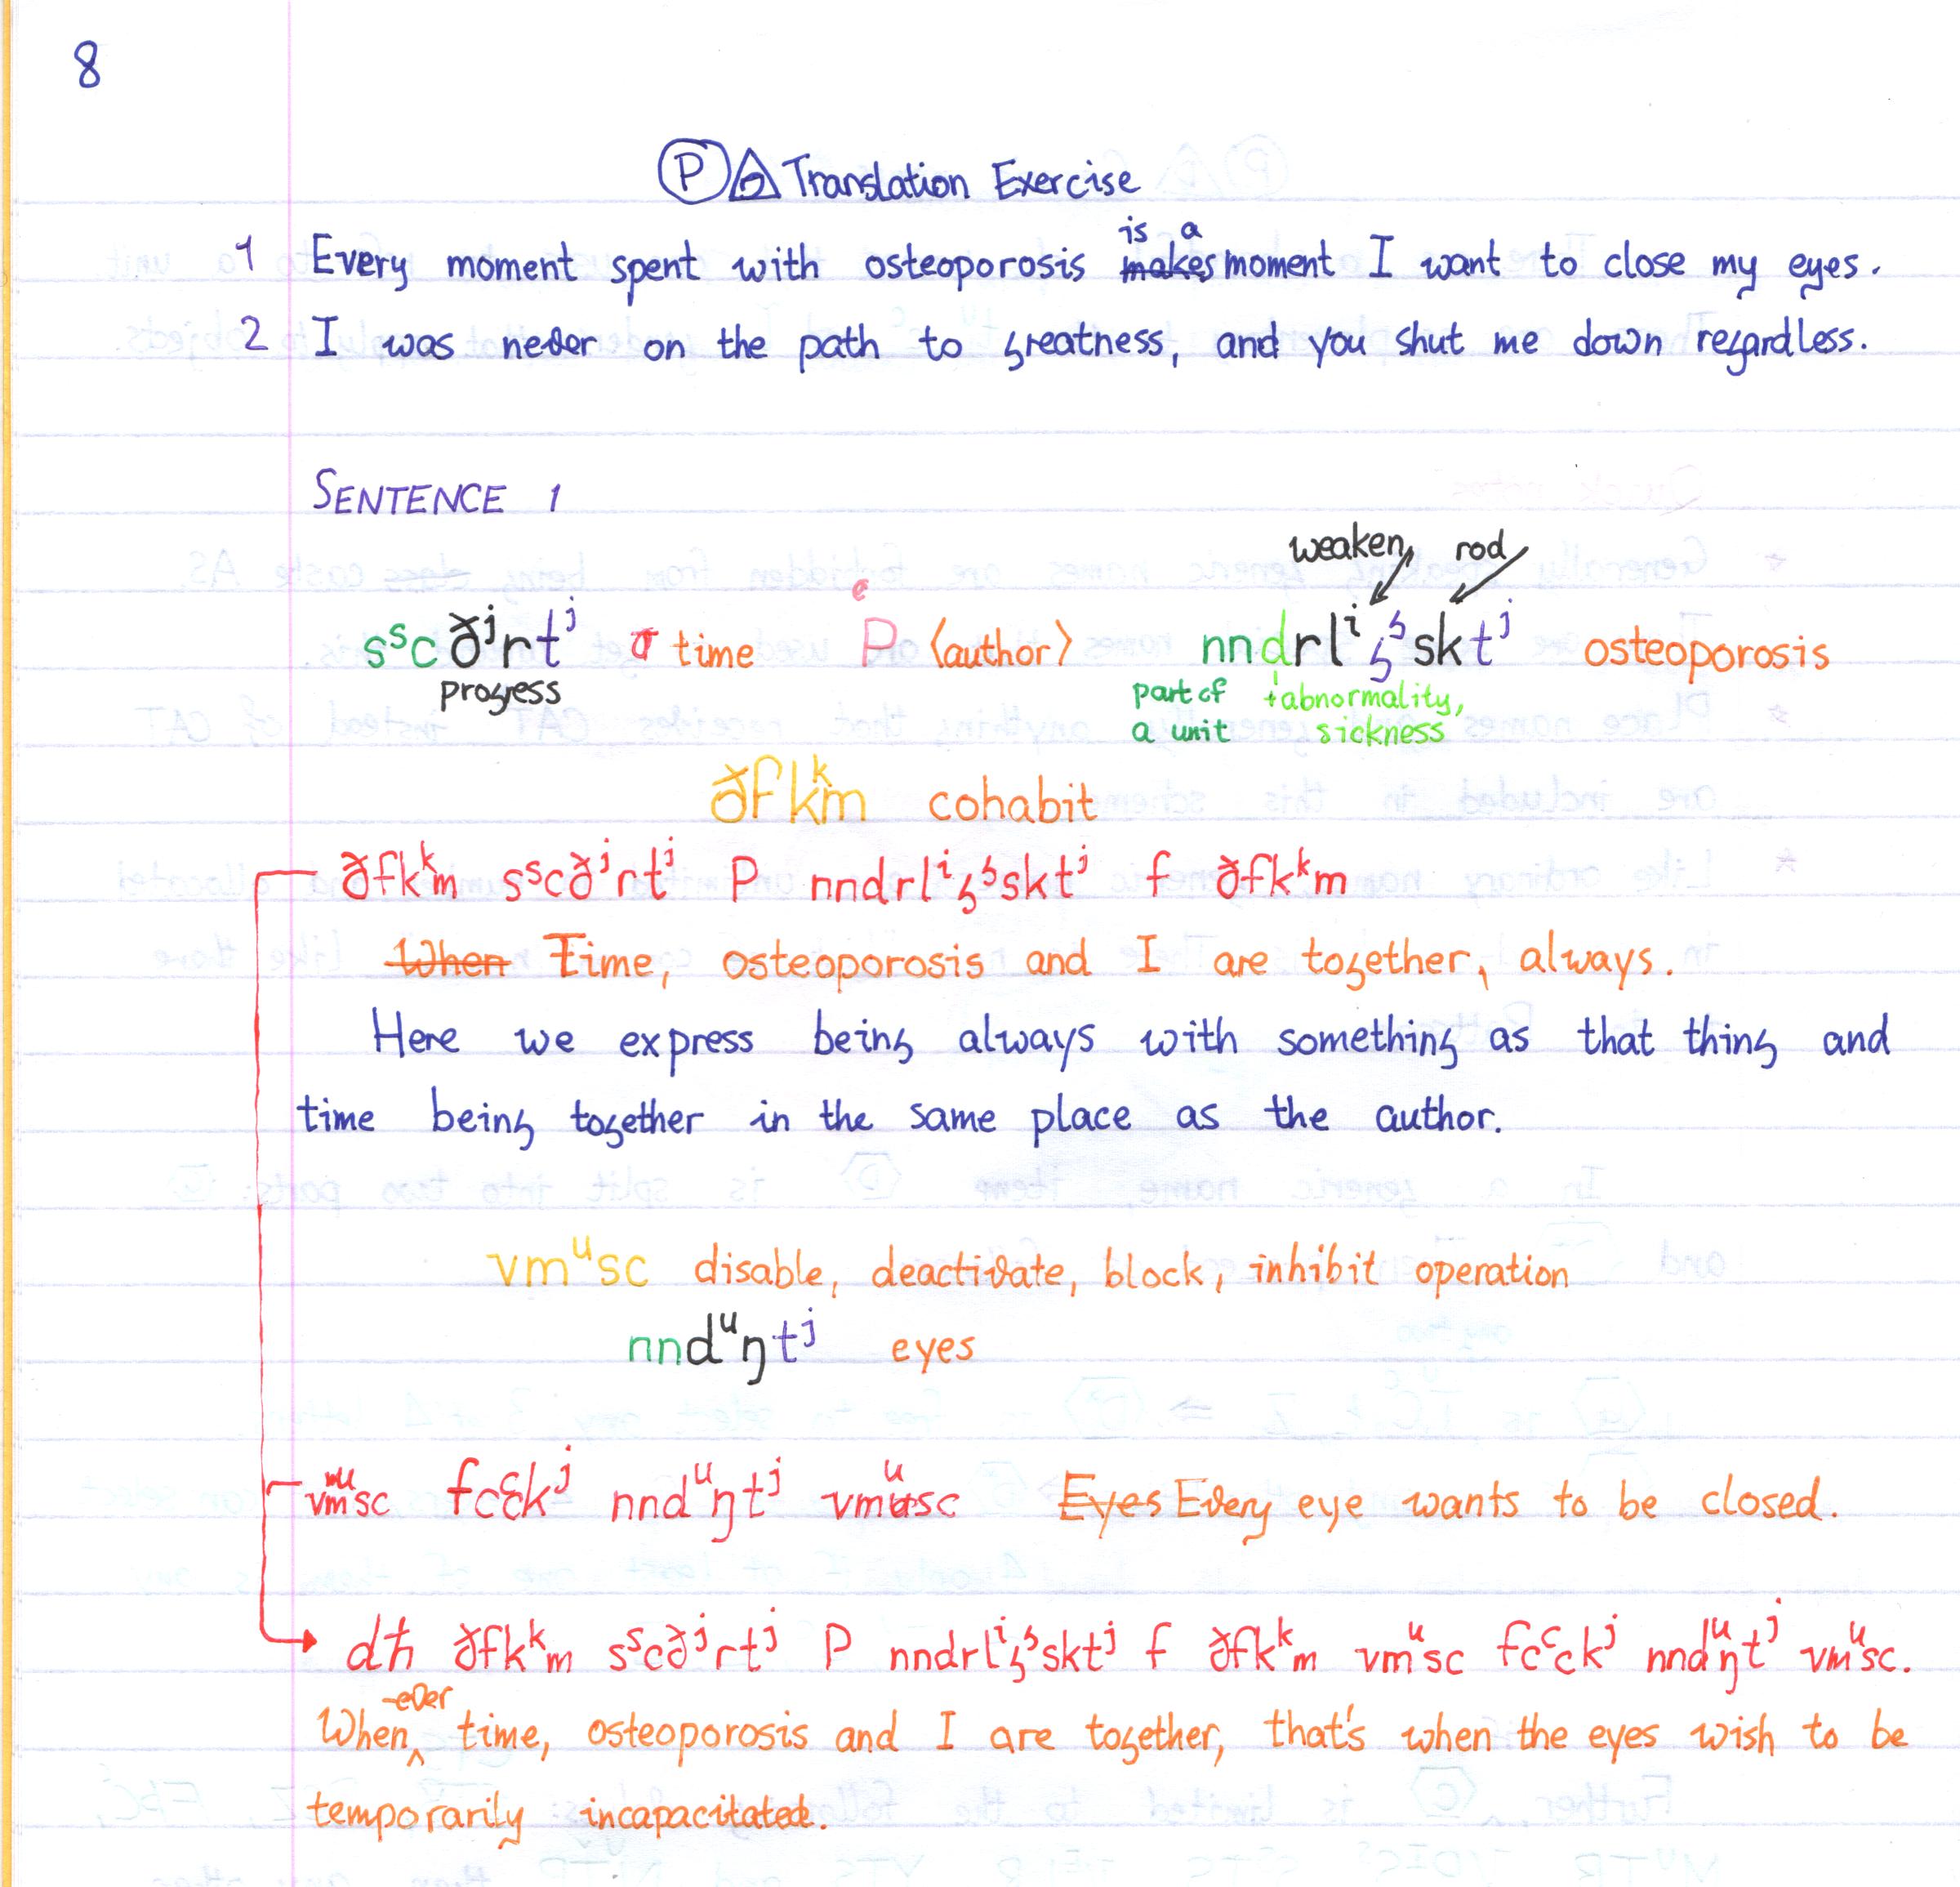 8
Ⓟ Translation Exercise
1 Every moment spent with osteoporosis ~~makes~~ is a moment I want to close my eyes.
2 I was never on the path to greatness, and you shut me down regardless.
SENTENCE 1
weaken rod
sˢcðʲrtʲ time Pᵉ ⟨author⟩ nndrlⁱʒᶾsktʲ osteoporosis
progress part of a unit + abnormality, sickness
ðfkᵏm cohabit
ðfkᵏm sˢcðʲrtʲ P nndrlⁱʒᶾsktʲ f ðfkᵏm
~~When~~ Time, osteoporosis and I are together, always.
Here we express being always with something as that thing and
time being together in the same place as the author.
vmᵘsc disable, deactivate, block, inhibit operation
nndᵘŋtʲ eyes
vmᵘsc fcᶜckʲ nndᵘŋtʲ vmᵘsc ~~Eyes~~ Every eye wants to be closed.
dħ ðfkᵏm sˢcðʲrtʲ P nndrlⁱʒᶾsktʲ f ðfkᵏm vmᵘsc fcᶜckʲ nndᵘŋtʲ vmᵘsc.
When-ever time, osteoporosis and I are together, that's when the eyes wish to be
temporarily incapacitated.